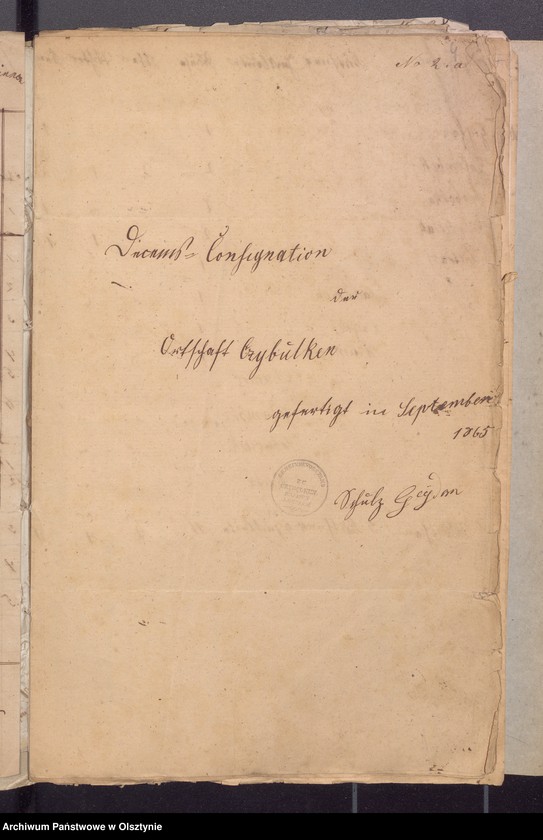 No 2.a
Decems-Consignation
der
Ortschaft Czybulken
gefertigt im September
1865
Schulz
Archiwum Państwowe w Olsztynie